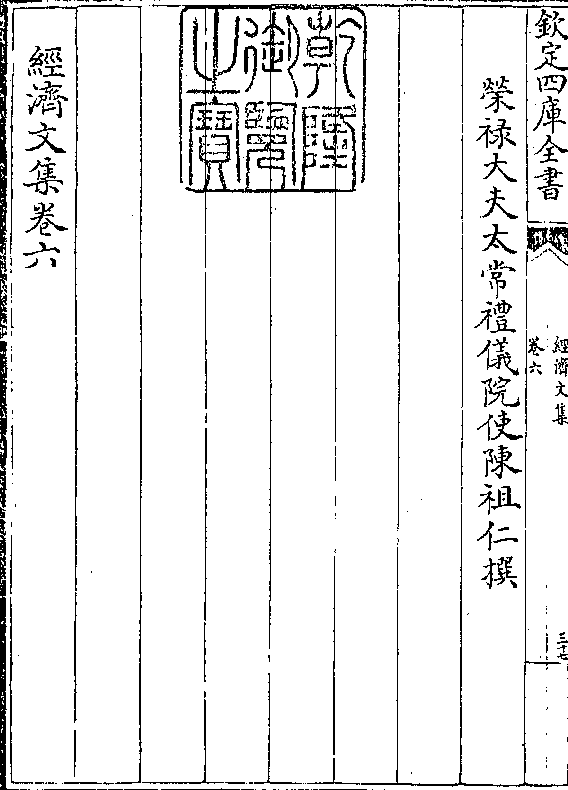 欽定四庫全書
經濟文集
卷六
三十七
榮禄大夫太常禮儀院使陳祖仁撰
乾隆御覽之寶
經濟文集卷六